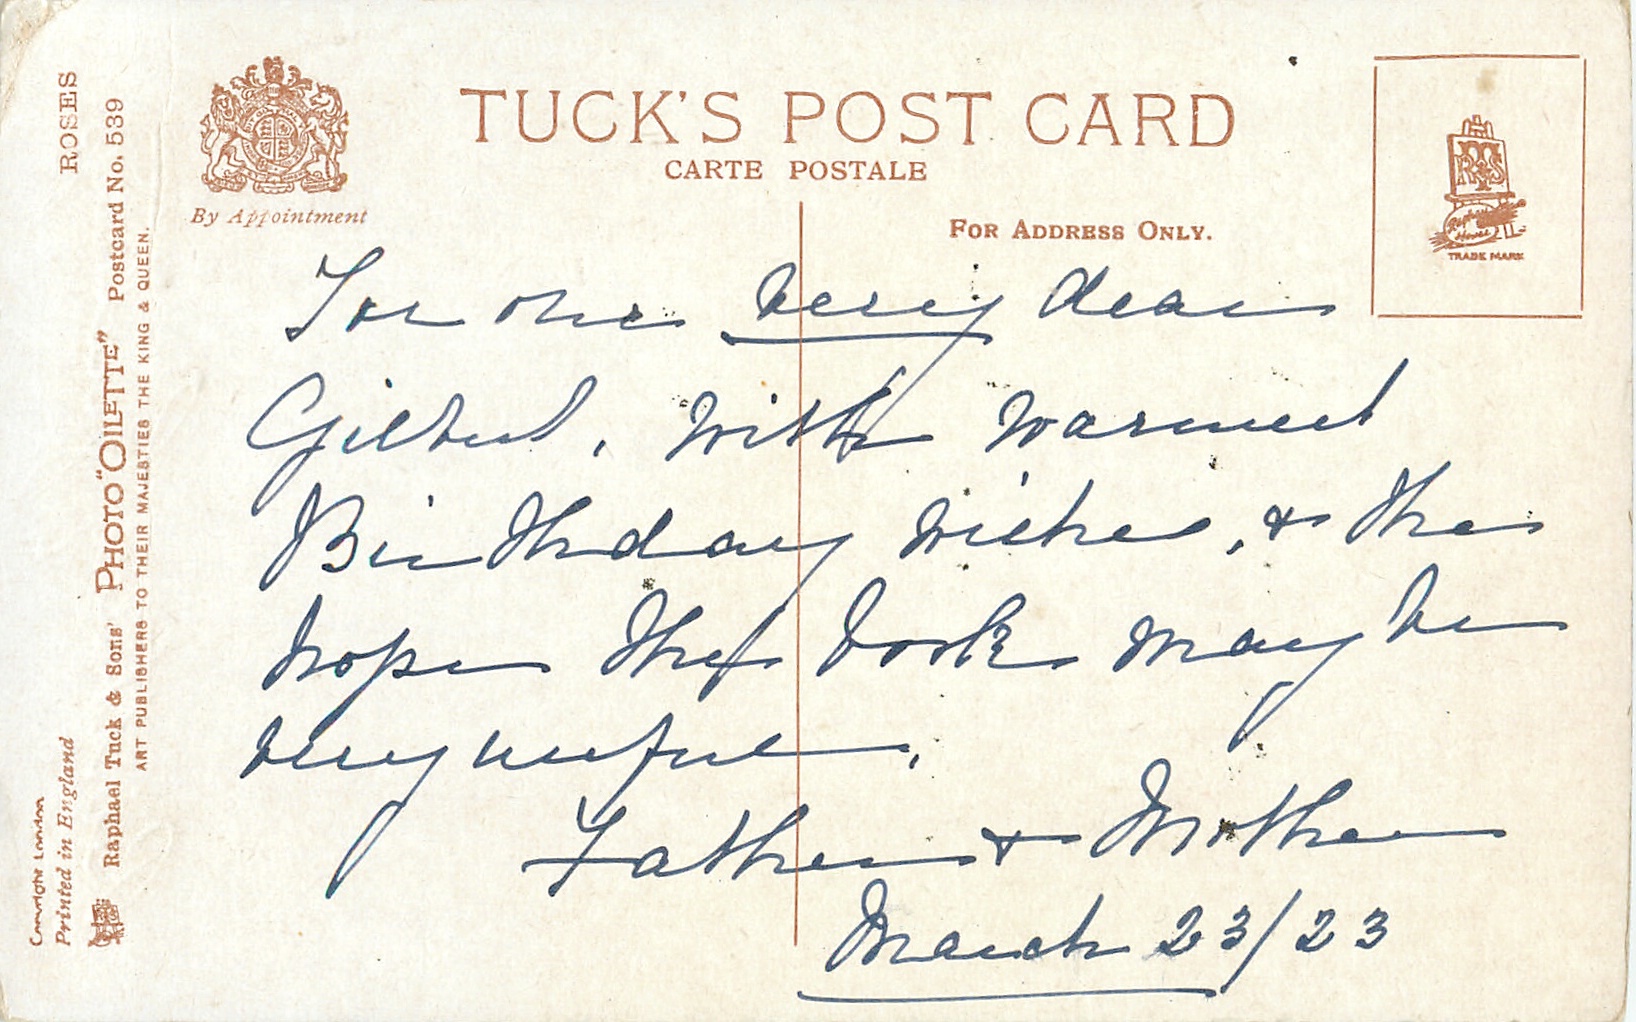 TUCK'S POST CARD
CARTE POSTALE
By Appointment
FOR ADDRESS ONLY.
RTS
Raphael House
TRADE MARK
For our very dear
Gilbert, with warmest
Birthday wishes, & the
hope the book may be
very useful.
Father & Mother
March 23/23
ROSES
Raphael Tuck & Sons' PHOTO "OILETTE" Postcard No. 539
ART PUBLISHERS TO THEIR MAJESTIES THE KING & QUEEN.
Copyright London
Printed in England